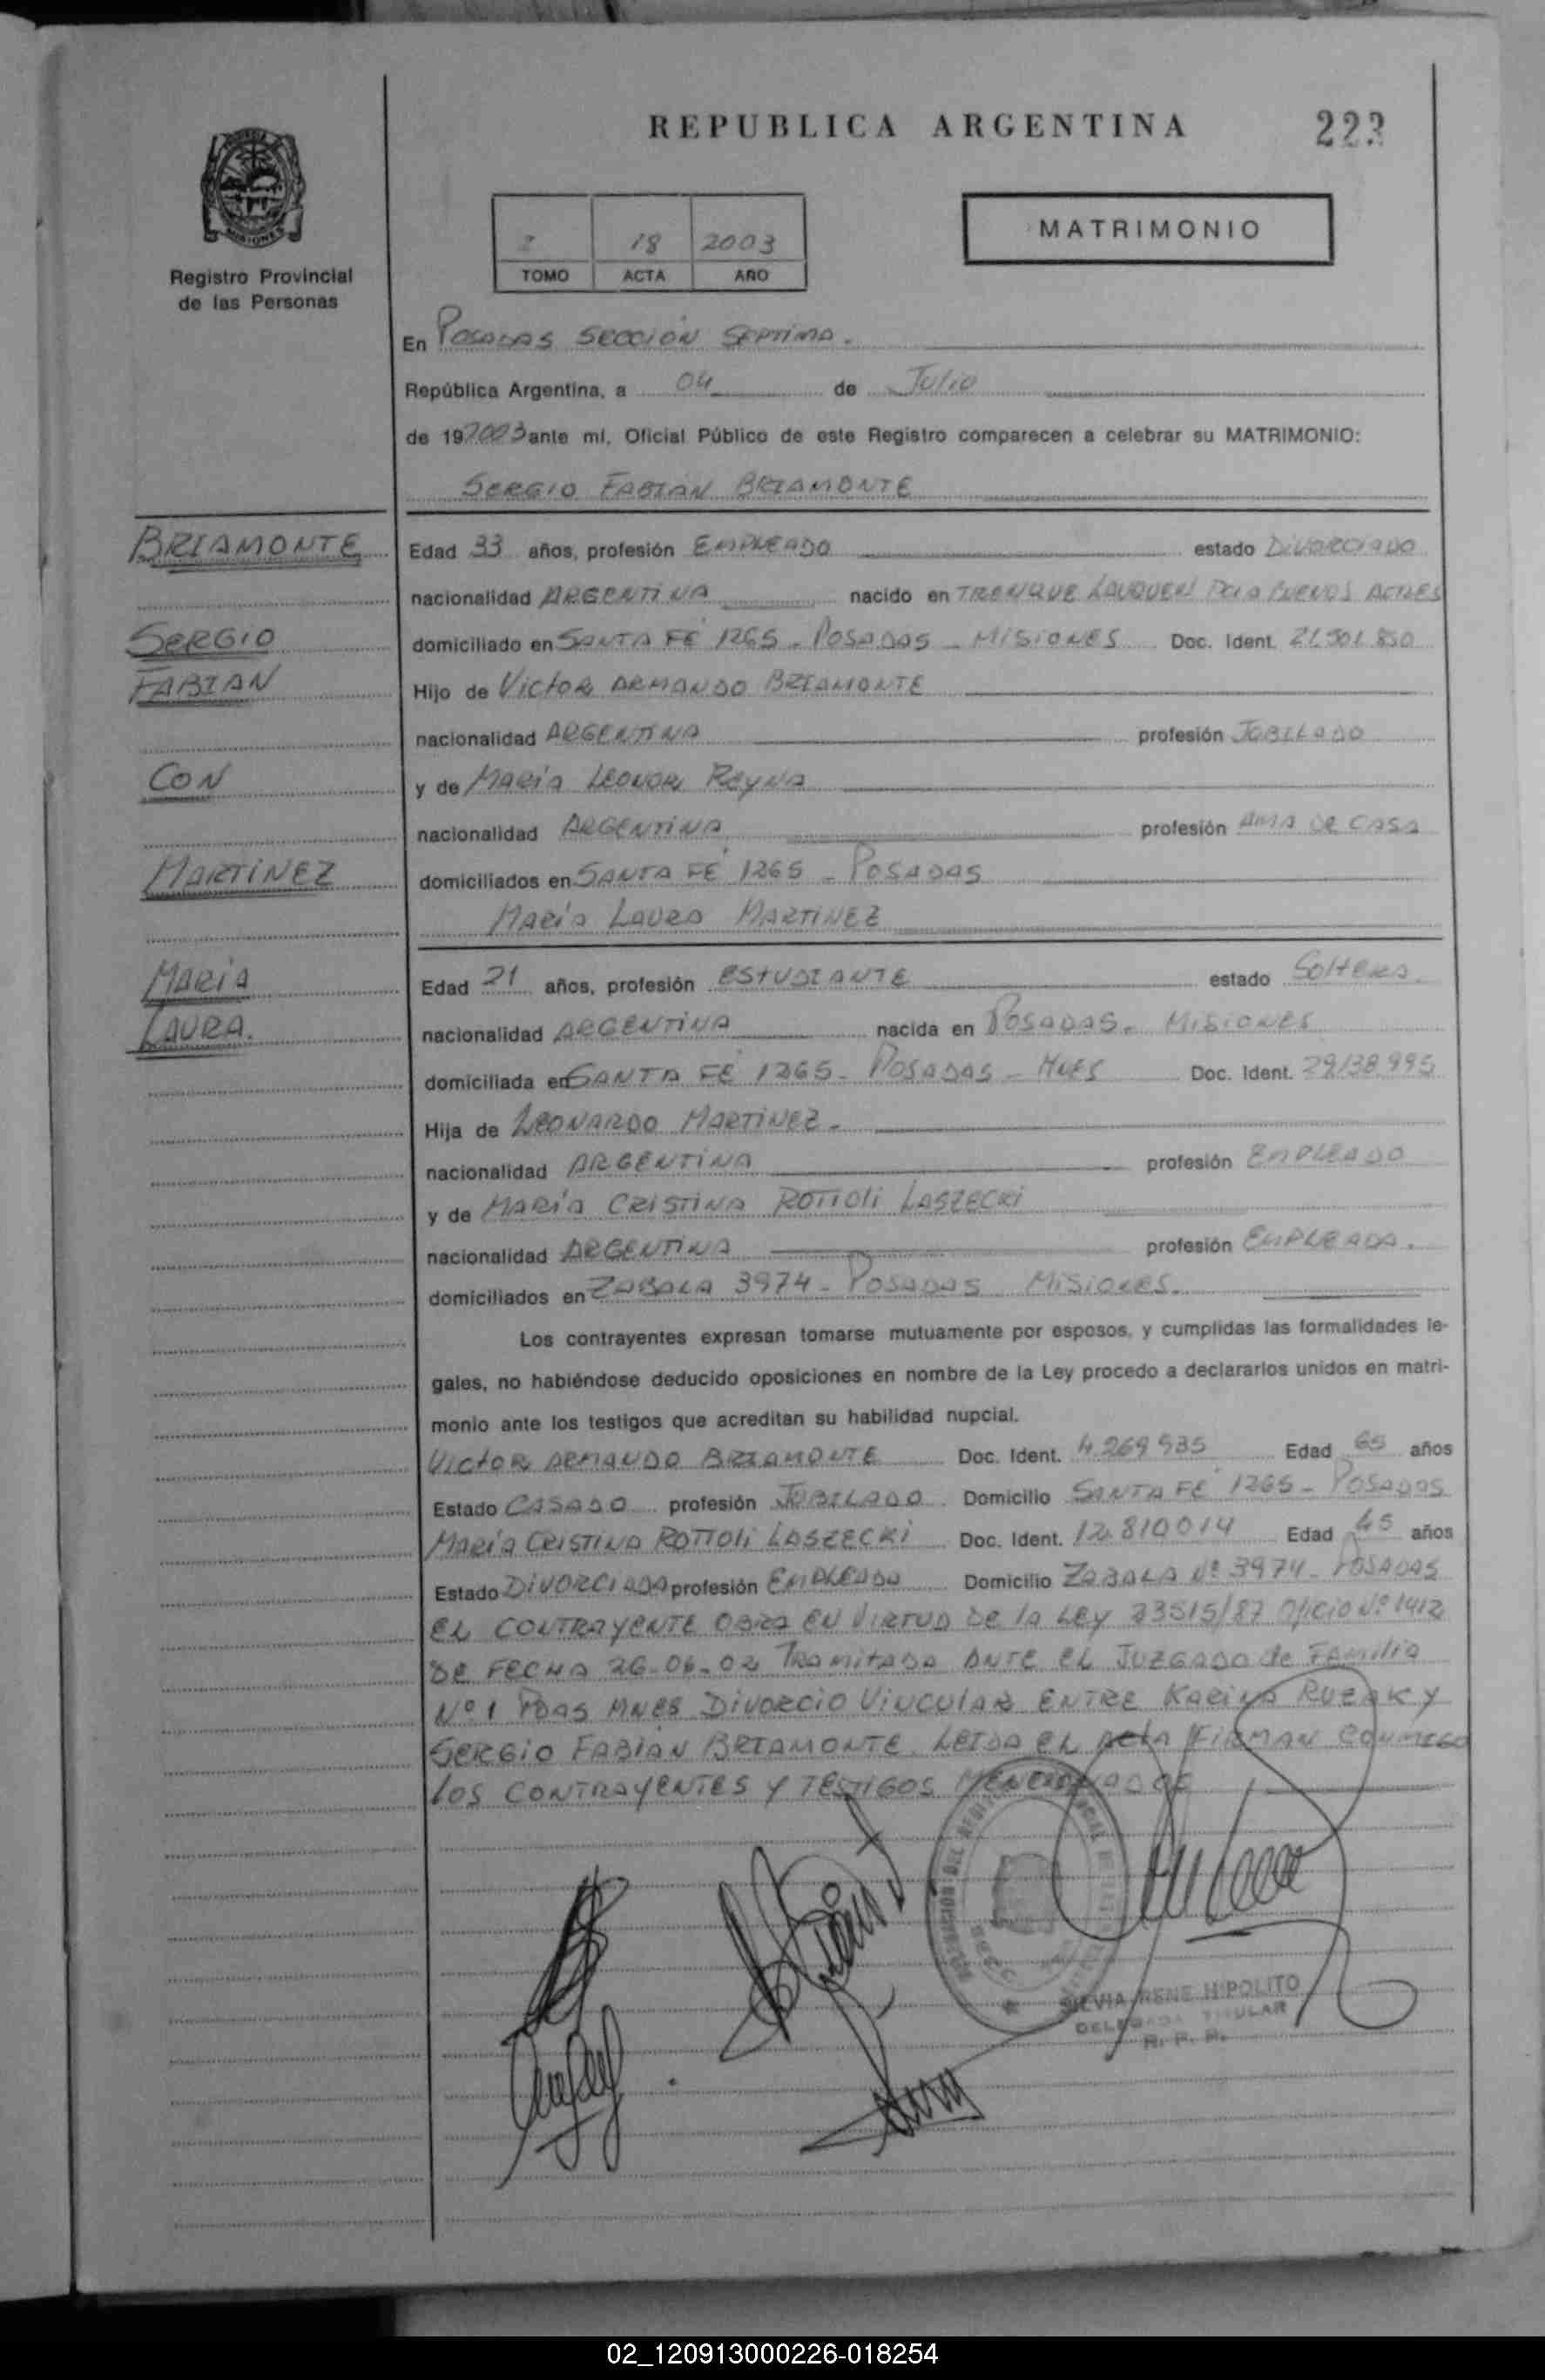 REPUBLICA ARGENTINA
223
MISIONES
Registro Provincial
de las Personas
18 2003
TOMO ACTA AÑO
MATRIMONIO
En POSADAS SECCIÓN SEPTIMA.
República Argentina, a 04 de Julio
de 192003 ante mí, Oficial Público de este Registro comparecen a celebrar su MATRIMONIO:
SERGIO FABIÁN BRIAMONTE
BRIAMONTE
SERGIO
FABIAN
CON
MARTINEZ
MARIA
LAURA.
Edad 33 años, profesión EMPLEADO estado DIVORCIADO
nacionalidad ARGENTINA nacido en TRENQUE LAUQUEN PCIA BUENOS AIRES
domiciliado en SANTA FÉ 1265 - POSADAS - MISIONES Doc. Ident. 21.501.850
Hijo de VICTOR ARMANDO BRIAMONTE
nacionalidad ARGENTINA profesión JUBILADO
y de MARÍA LEONOR REYNA
nacionalidad ARGENTINA profesión AMA DE CASA
domiciliados en SANTA FÉ 1265 - POSADAS
MARÍA LAURA MARTINEZ
Edad 21 años, profesión ESTUDIANTE estado SOLTERA.
nacionalidad ARGENTINA nacida en POSADAS - MISIONES
domiciliada en SANTA FÉ 1265 - POSADAS - MNES Doc. Ident. 29138995
Hija de LEONARDO MARTINEZ -
nacionalidad ARGENTINA profesión EMPLEADO
y de MARÍA CRISTINA ROTTOLI LASZECKI
nacionalidad ARGENTINA profesión EMPLEADA.
domiciliados en ZABALA 3974 - POSADAS MISIONES.
Los contrayentes expresan tomarse mutuamente por esposos, y cumplidas las formalidades le-
gales, no habiéndose deducido oposiciones en nombre de la Ley procedo a declararlos unidos en matri-
monio ante los testigos que acreditan su habilidad nupcial.
VICTOR ARMANDO BRIAMONTE Doc. Ident. 4.269935 Edad 65 años
Estado CASADO profesión JUBILADO Domicilio SANTA FÉ 1265 - POSADAS
MARÍA CRISTINA ROTTOLI LASZECKI Doc. Ident. 12.810014 Edad 45 años
Estado DIVORCIADA profesión EMPLEADA Domicilio ZABALA Nº 3974 - POSADAS
EL CONTRAYENTE OBRA EN VIRTUD DE la LEY 23515/87 Oficio Nº 1412
DE FECHA 26-06-02 TRAMITADA ANTE EL JUZGADO de FAMILIA
Nº 1 PDAS MNES DIVORCIO VINCULAR ENTRE KARINA RUZAK Y
SERGIO FABIÁN BRIAMONTE. LEIDA EL ACTA FIRMAN CONMIGO
LOS CONTRAYENTES Y TESTIGOS MENCIONADOS
SILVIA RENE HIPOLITO
DELEGADA TITULAR
R. P. P.
02_120913000226-018254